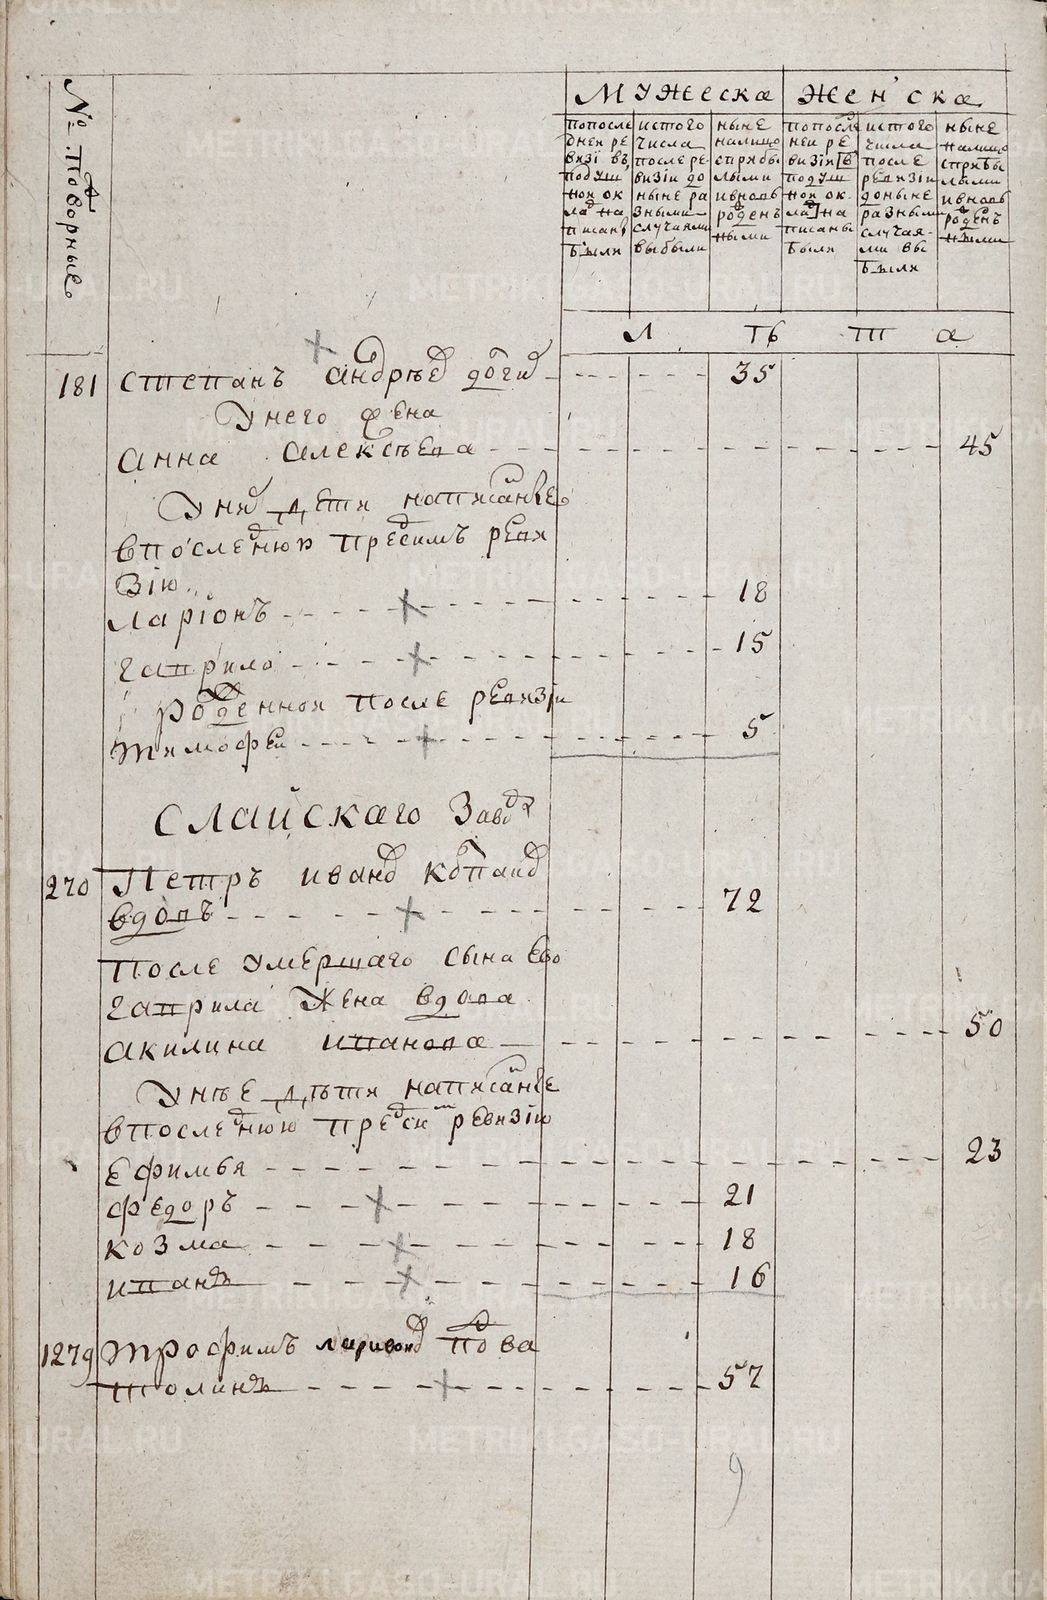 № подворные
Мужеска Женска
попосле дней ре визі въ подуш ной ок ладъ на писанъ были
истого числа после ре визіи до ныне ра зными случаями выбыли
ныне налицо сприбы лыми ивновь рожден ными
попосле ней ре визіи в подуш ной ок ладъ на писаны были
истого числа после ревизіи доныне разными случая ми вы были
ныне налицо сприбы лыми ивновь рожденъ ными
Л Ѣ Т а
181 степанъ андрѣев 35
Унего жена
анна алексѣева 45
Уних дети написанные
впоследнюю пред симъ реви
зію
ларіонъ 18
гаврило 15
рожденной после ревизіи
тимофей 5
Слаискаго Завода
270 Петръ иванов
вдовъ 72
после умершаго сына ево
гаврила жена вдова
акилина иванова 50
Унѣе дѣти написанные
впоследнюю пред сим ревизію
ефимья 23
федоръ 21
козма 18
иванъ 16
1279 трофимъ ларивонов
57
9